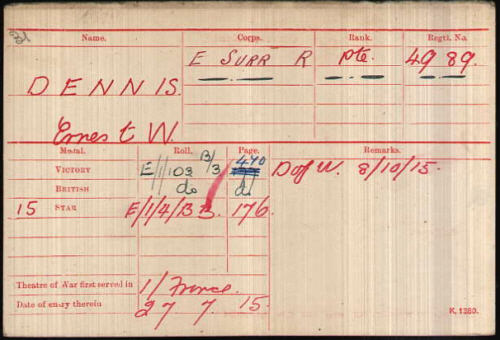 Name. Corps. Rank. Regtl. No.
E SURR R Pte. 4989.
DENNIS.
Ernest W.
Medal. Roll. Page. Remarks.
VICTORY E/1/103 B/3 440 D of W. 8/10/15.
BRITISH do do
15 STAR E/1/4/B 3. 176.
Theatre of War first served in 1/ France.
Date of entry therein 27 7. 15.
K. 1380.